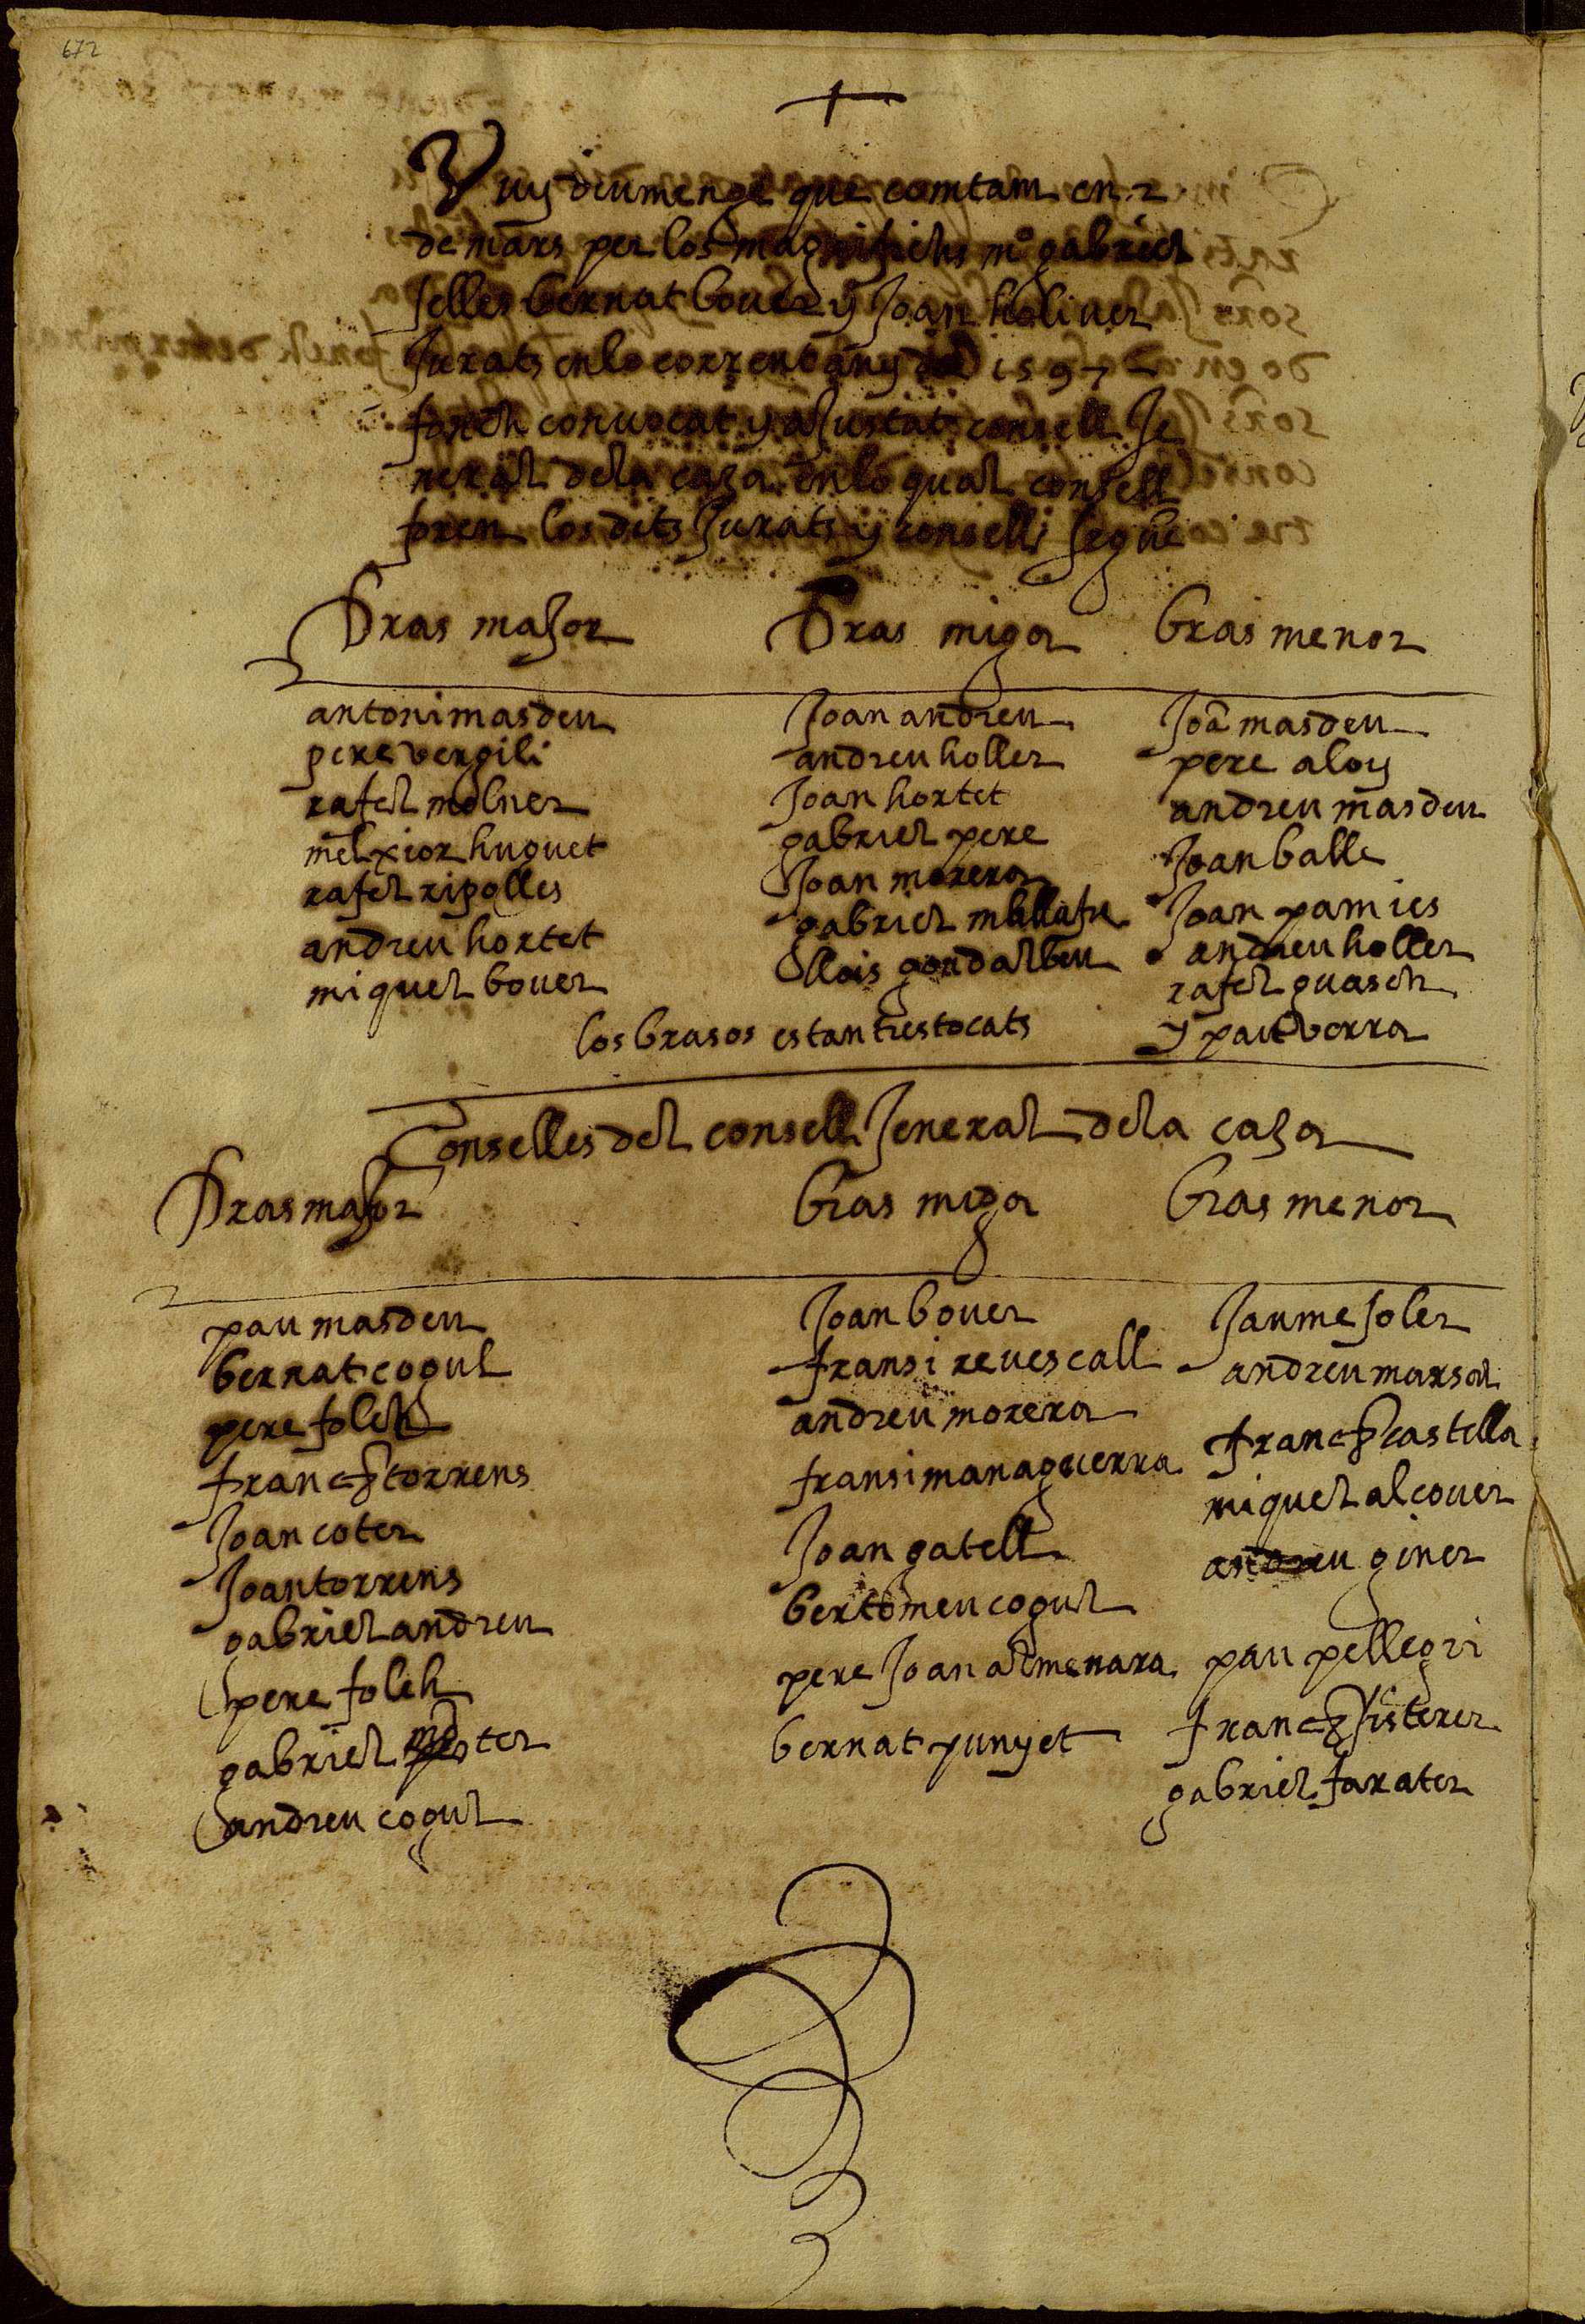 672
Vuy diumenge que comtam en 2
de mars per los magnifichs mº gabriel
selles bernat bover y Joan holiver
Jurats en lo corrent any de 1597
fonch convocat y aJustat consell Je
neral de la caza en lo qual consell
foren los dits Jurats y conselli segue
Bras maJor Bras miga bras menor
antoni masdeu Joan andreu Joã masdeu
pere vergili andreu holler pere aloy
rafel molner Joan hortet andreu masdeu
melxior huguet gabriel pere Joan balle
rafel ripolles Joan morera Joan pamies
andreu hortet gabriel mallafre andreu holler
miquel bover llois gondalbeu rafel guasch
los brasos estan trestocats y pau verra
Conselles del consell Jeneral de la caza
Bras maJor bras miga bras menor
pau masdeu Joan bover Jaume soler
bernat cogul fransi revescall andreu marsal
pere folch andreu morera franc castella
franc torrens fransi managuerra miquel alcover
Joan coter Joan gatell andreu giner
Joan torrens bertomeu cogul
gabriel andreu pere Joan almenara pau pellegri
pere folch bernat punyet franc fisterer
gabriel gabriel farater
andreu cogul